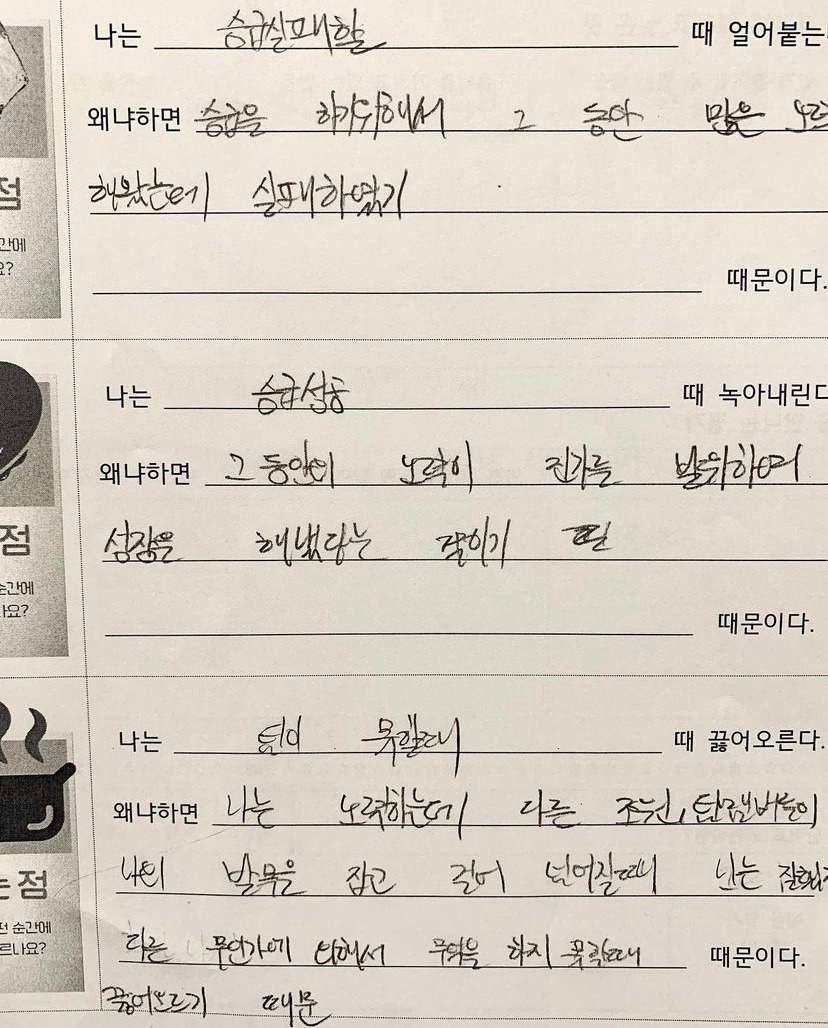 나는 승급실패할 때 얼어붙는
왜냐하면 승급을 하기위해서 그 동안 많은 노력
점
해왔는데 실패하였기
순간에
요?
때문이다.
나는 승급성공 때 녹아내린다
왜냐하면 그 동안의 노력이 진가를 발휘하여
점
성장을 해냈다는 말이기
순간에
나요?
때문이다.
나는 팀이 못할때 때 끓어오른다.
왜냐하면 나는 노력하는데 다른 조원, 팀맴버들이
는 점
나의 발목을 잡고 걸어 넘어질때 난는
떤 순간에
르나요?
다른 무언가에 의해서 무언을 하지 못할때 때문이다.
끓어오르기 때문